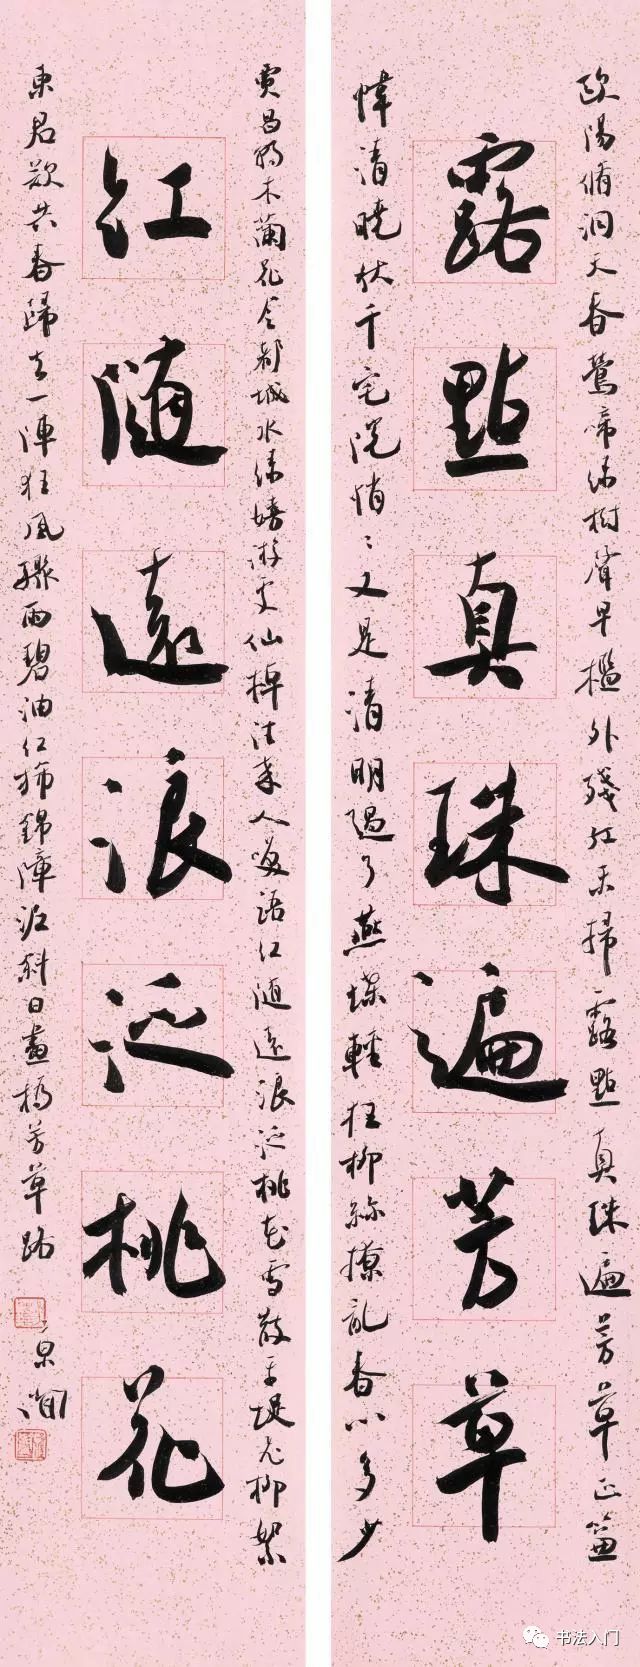 欧陽脩洞天春鶯啼綠樹聲早檻外殘紅未掃露點真珠遍芳草正簾
露點真珠遍芳草
幃清曉秋千宅院悄〻又是清明過了燕蝶輕狂柳絲撩亂春心多少
賈昌朝木蘭花令都城水綠嬉游處仙棹往來人笑語紅隨遠浪泛桃花雪散平堤飛柳絮
紅隨遠浪泛桃花
東君欲共春歸去一陣狂風驟雨碧油紅旆錦障泥斜日畫橋芳草路
书法入门